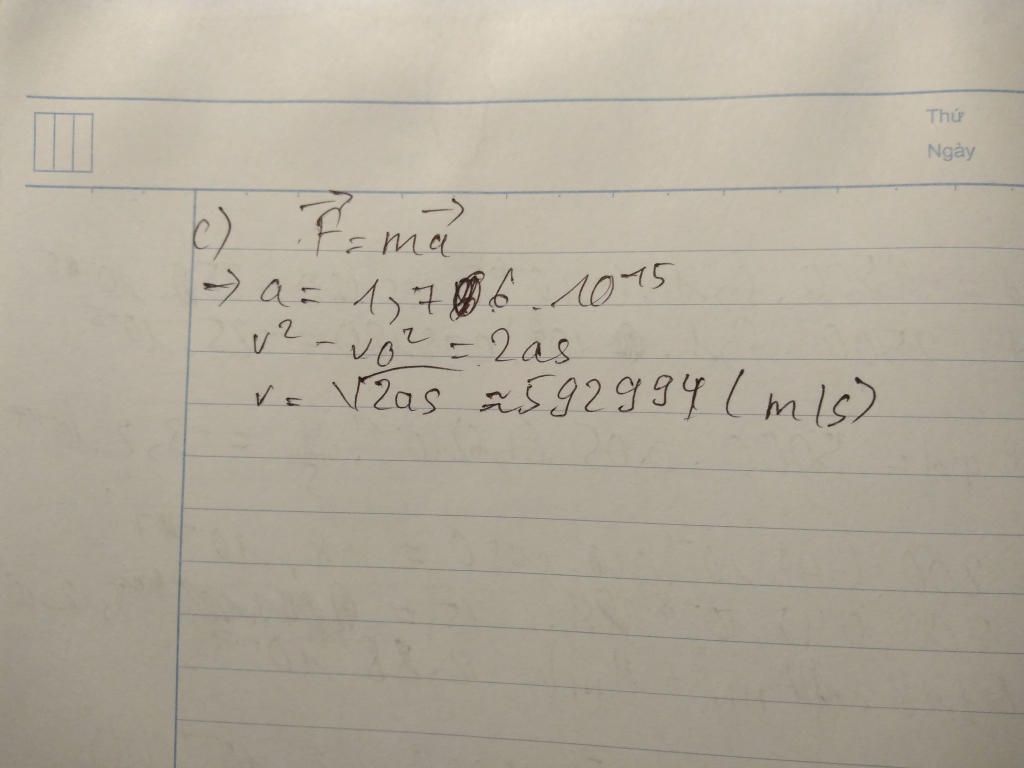 Thứ
Ngày
c) F⃗ = ma⃗
→ a = 1,76.10⁻¹⁵
v² - v₀² = 2as
v = √2as ≈ 592994 (m/s)